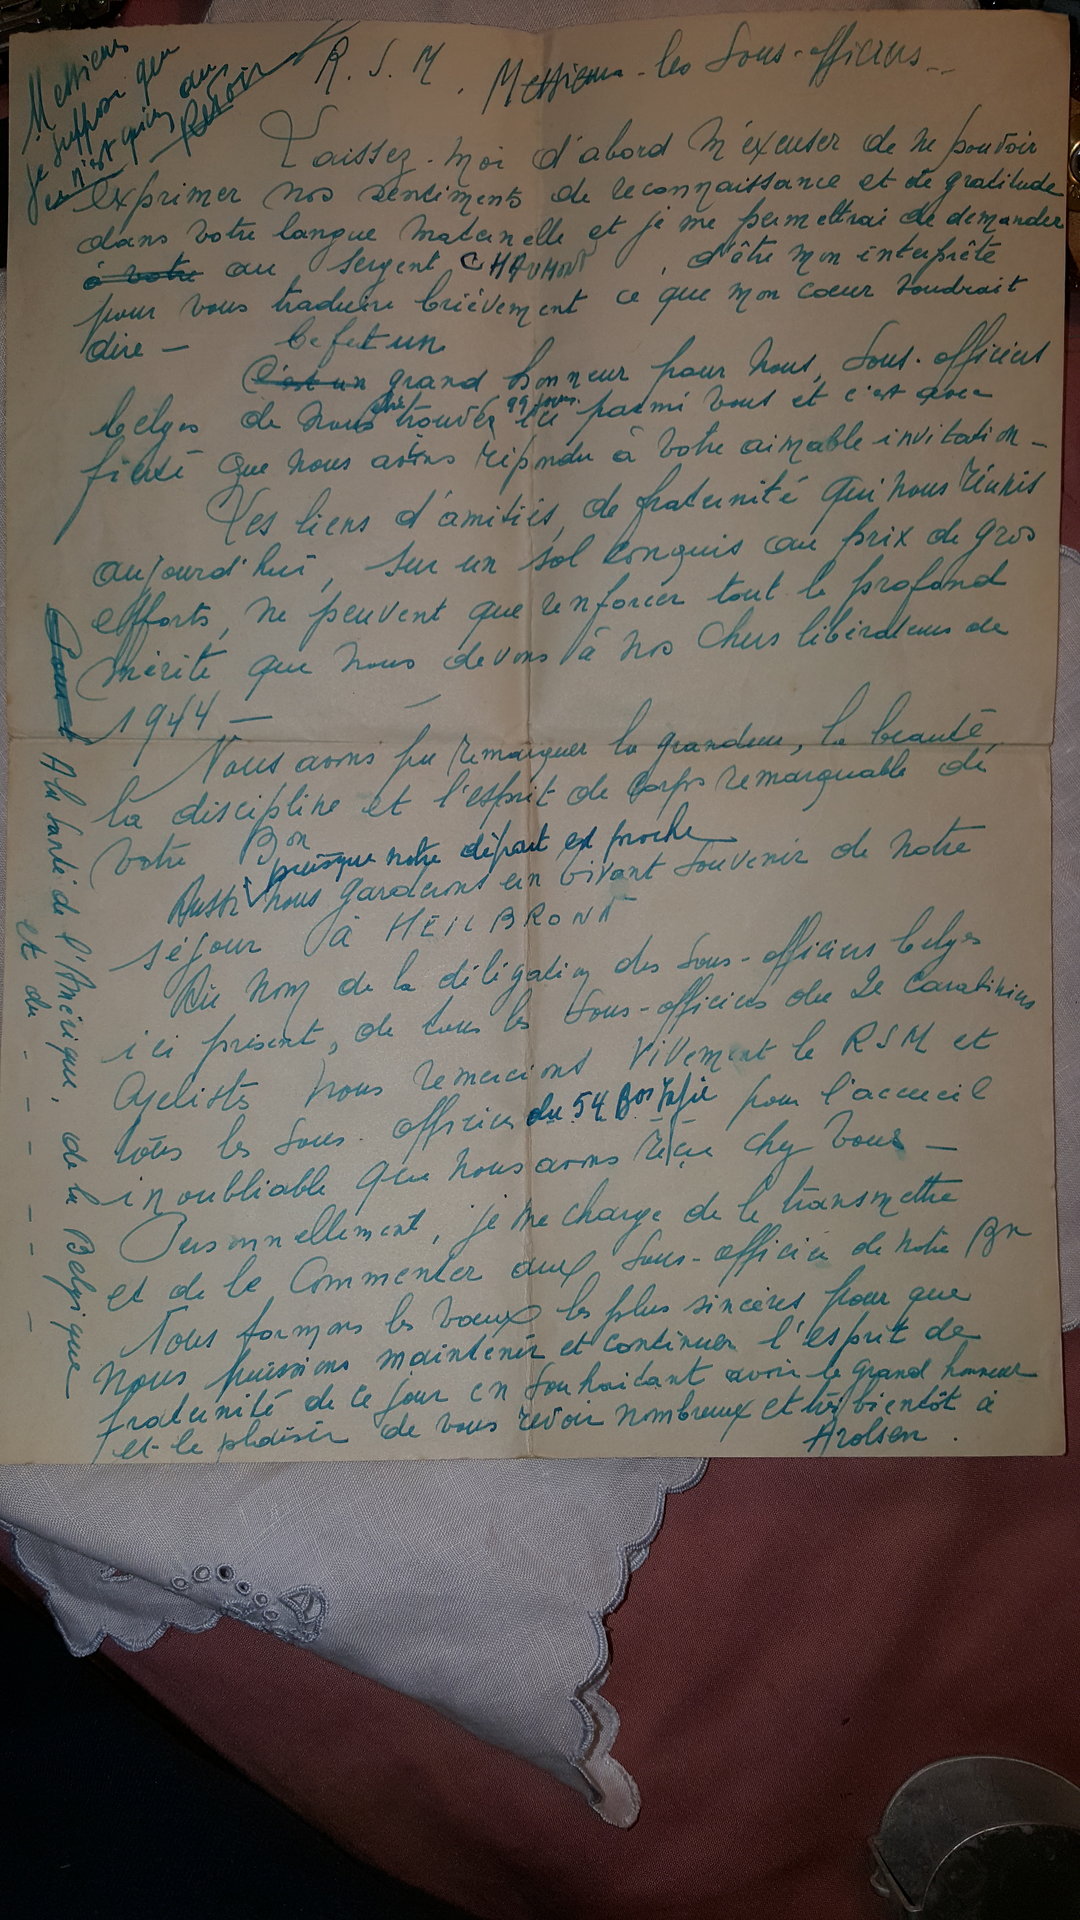 Messieurs
je suppose que
ce n'est qu'un au
Revoir
R. S. M. Messieurs les Sous-officiers
Laissez-moi d'abord m'excuser de ne pouvoir
exprimer nos sentiments de reconnaissance et de gratitude
dans votre langue maternelle et je me permettrai de demander
à votre au sergent CHAUMONT, d'être mon interprête
pour vous traduire brièvement ce que mon coeur voudrait
dire —
Ce fut un
C'est un grand honneur pour nous, Sous-officiers
belges de nous trouver ici parmi vous et c'est avec
fierté que nous avons répondu à votre aimable invitation —
Les liens d'amitiés, de fraternité qui nous réunis
aujourd'hui, sur un sol conquis au prix de gros
efforts, ne peuvent que renforcer tout le profond
mérite que nous devons à nos chers libérateurs de
1944 —
Nous avons pu remarquer la grandeur, la beauté,
la discipline et l'esprit de corps remarquable de
votre Bon
puisque notre départ est proche
Aussi nous garderons un vivant souvenir de notre
séjour à HEILBRONN
Au nom de la délégation des Sous-officiers belges
ici présent, de tous les Sous-officiers du 2e Carabiniers
Cyclistes nous remercions vivement le RSM et
tous les Sous-officiers du 54 Bon pour l'acceuil
inoubliable que nous avons reçu chez vous —
Personnellement, je me charge de le transmettre
et de le commenter aux Sous-officier de notre Bn
Nous formons les voeux les plus sincères pour que
nous puissions maintenir et continuer l'esprit de
fraternité de ce jour en souhaitant avoir le grand honneur
et le plaisir de vous revoir nombreux et très bientôt à
Arolsen.
A la Santé de l'Amérique, de la Belgique
et du - - - - - -